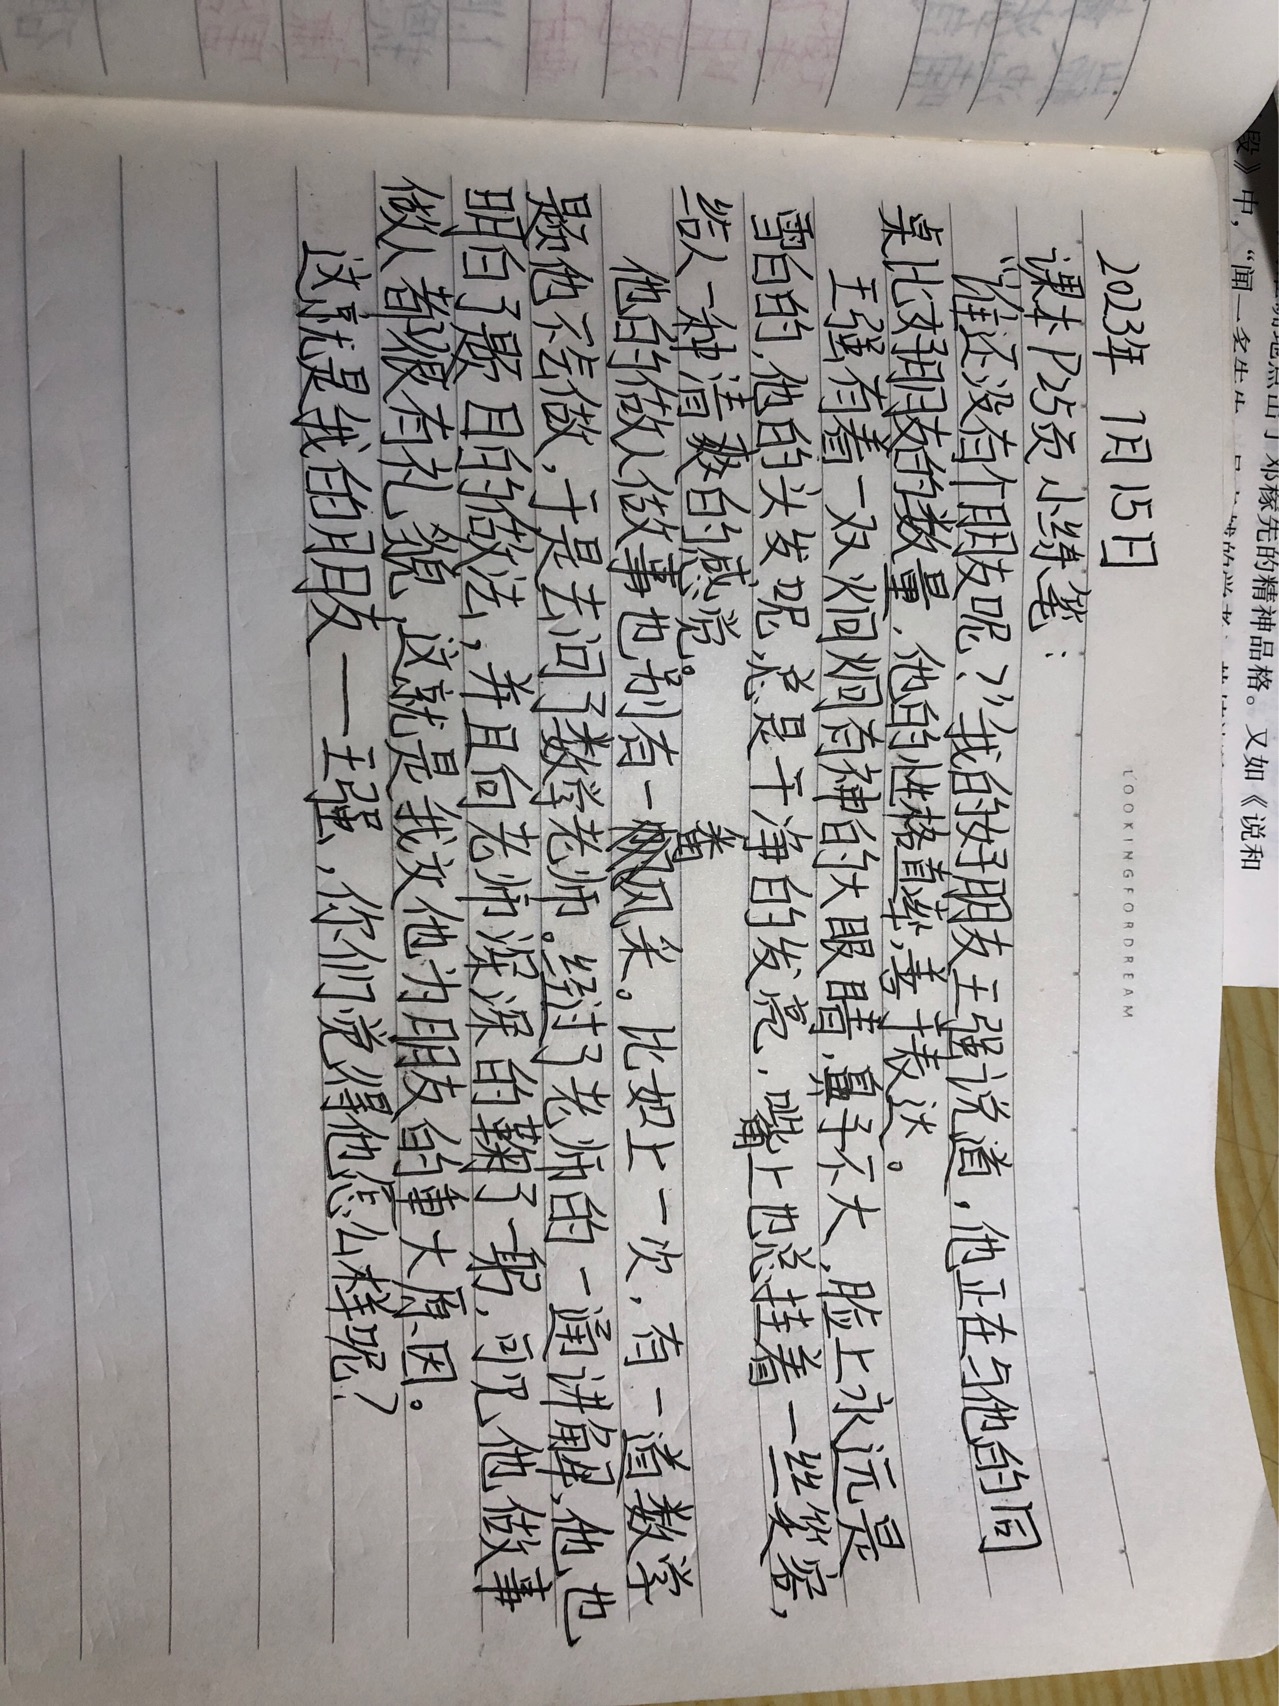 LOOKINGFORDREAM
2023年 1月15日
课本P25页小练笔：
“谁还没有个朋友呢？”我的好朋友王强说道，他正在与他的同
桌比好朋友的数量，他的性格直率，善于表达。
王强有着一双炯炯有神的大眼睛，鼻子不大，脸上永远是
雪白的，他的头发呢，总是干净的发亮，嘴上也总挂着一丝笑容，
给人一种清爽的感觉。
他的做人做事也别有一番风采。比如上一次，有一道数学
题他不会做，于是去问了数学老师。经过了老师的一通讲解，他也
明白了题目的做法，并且向老师深深的鞠了一躬，可见他做事
做人都很有礼貌，这就是我交他为朋友的重大原因。
这就是我的朋友——王强，你们觉得他怎么样呢？
点出了邓稼先的精神品格。又如《说和
殿》中，“闻一多先生